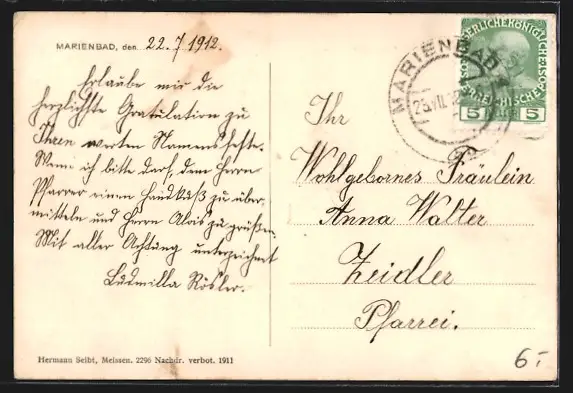 MARIENBAD, den 22.7 1912.
Erlaube mir die
herzlichste Gratulation zu
Ihren werten Namensfeste.
Wenn ich bitte darf, dem Herrn
Pfarrer einen Handkuß zu über-
mitteln und Herrn Alois zu grüßen.
Mit aller Achtung unterzeichnet
Ludmilla Rösler.
Hermann Seibt, Meissen. 2296 Nachdr. verbot. 1911
KAISERLICHE KÖNIGLICHE
ÖSTERREICHISCHE POST
5 5
MARIENBAD
23.VII.12
Ihr
Wohlgebornes Fräulein
Anna Walter
Zeidler
Pfarrei.
6.-